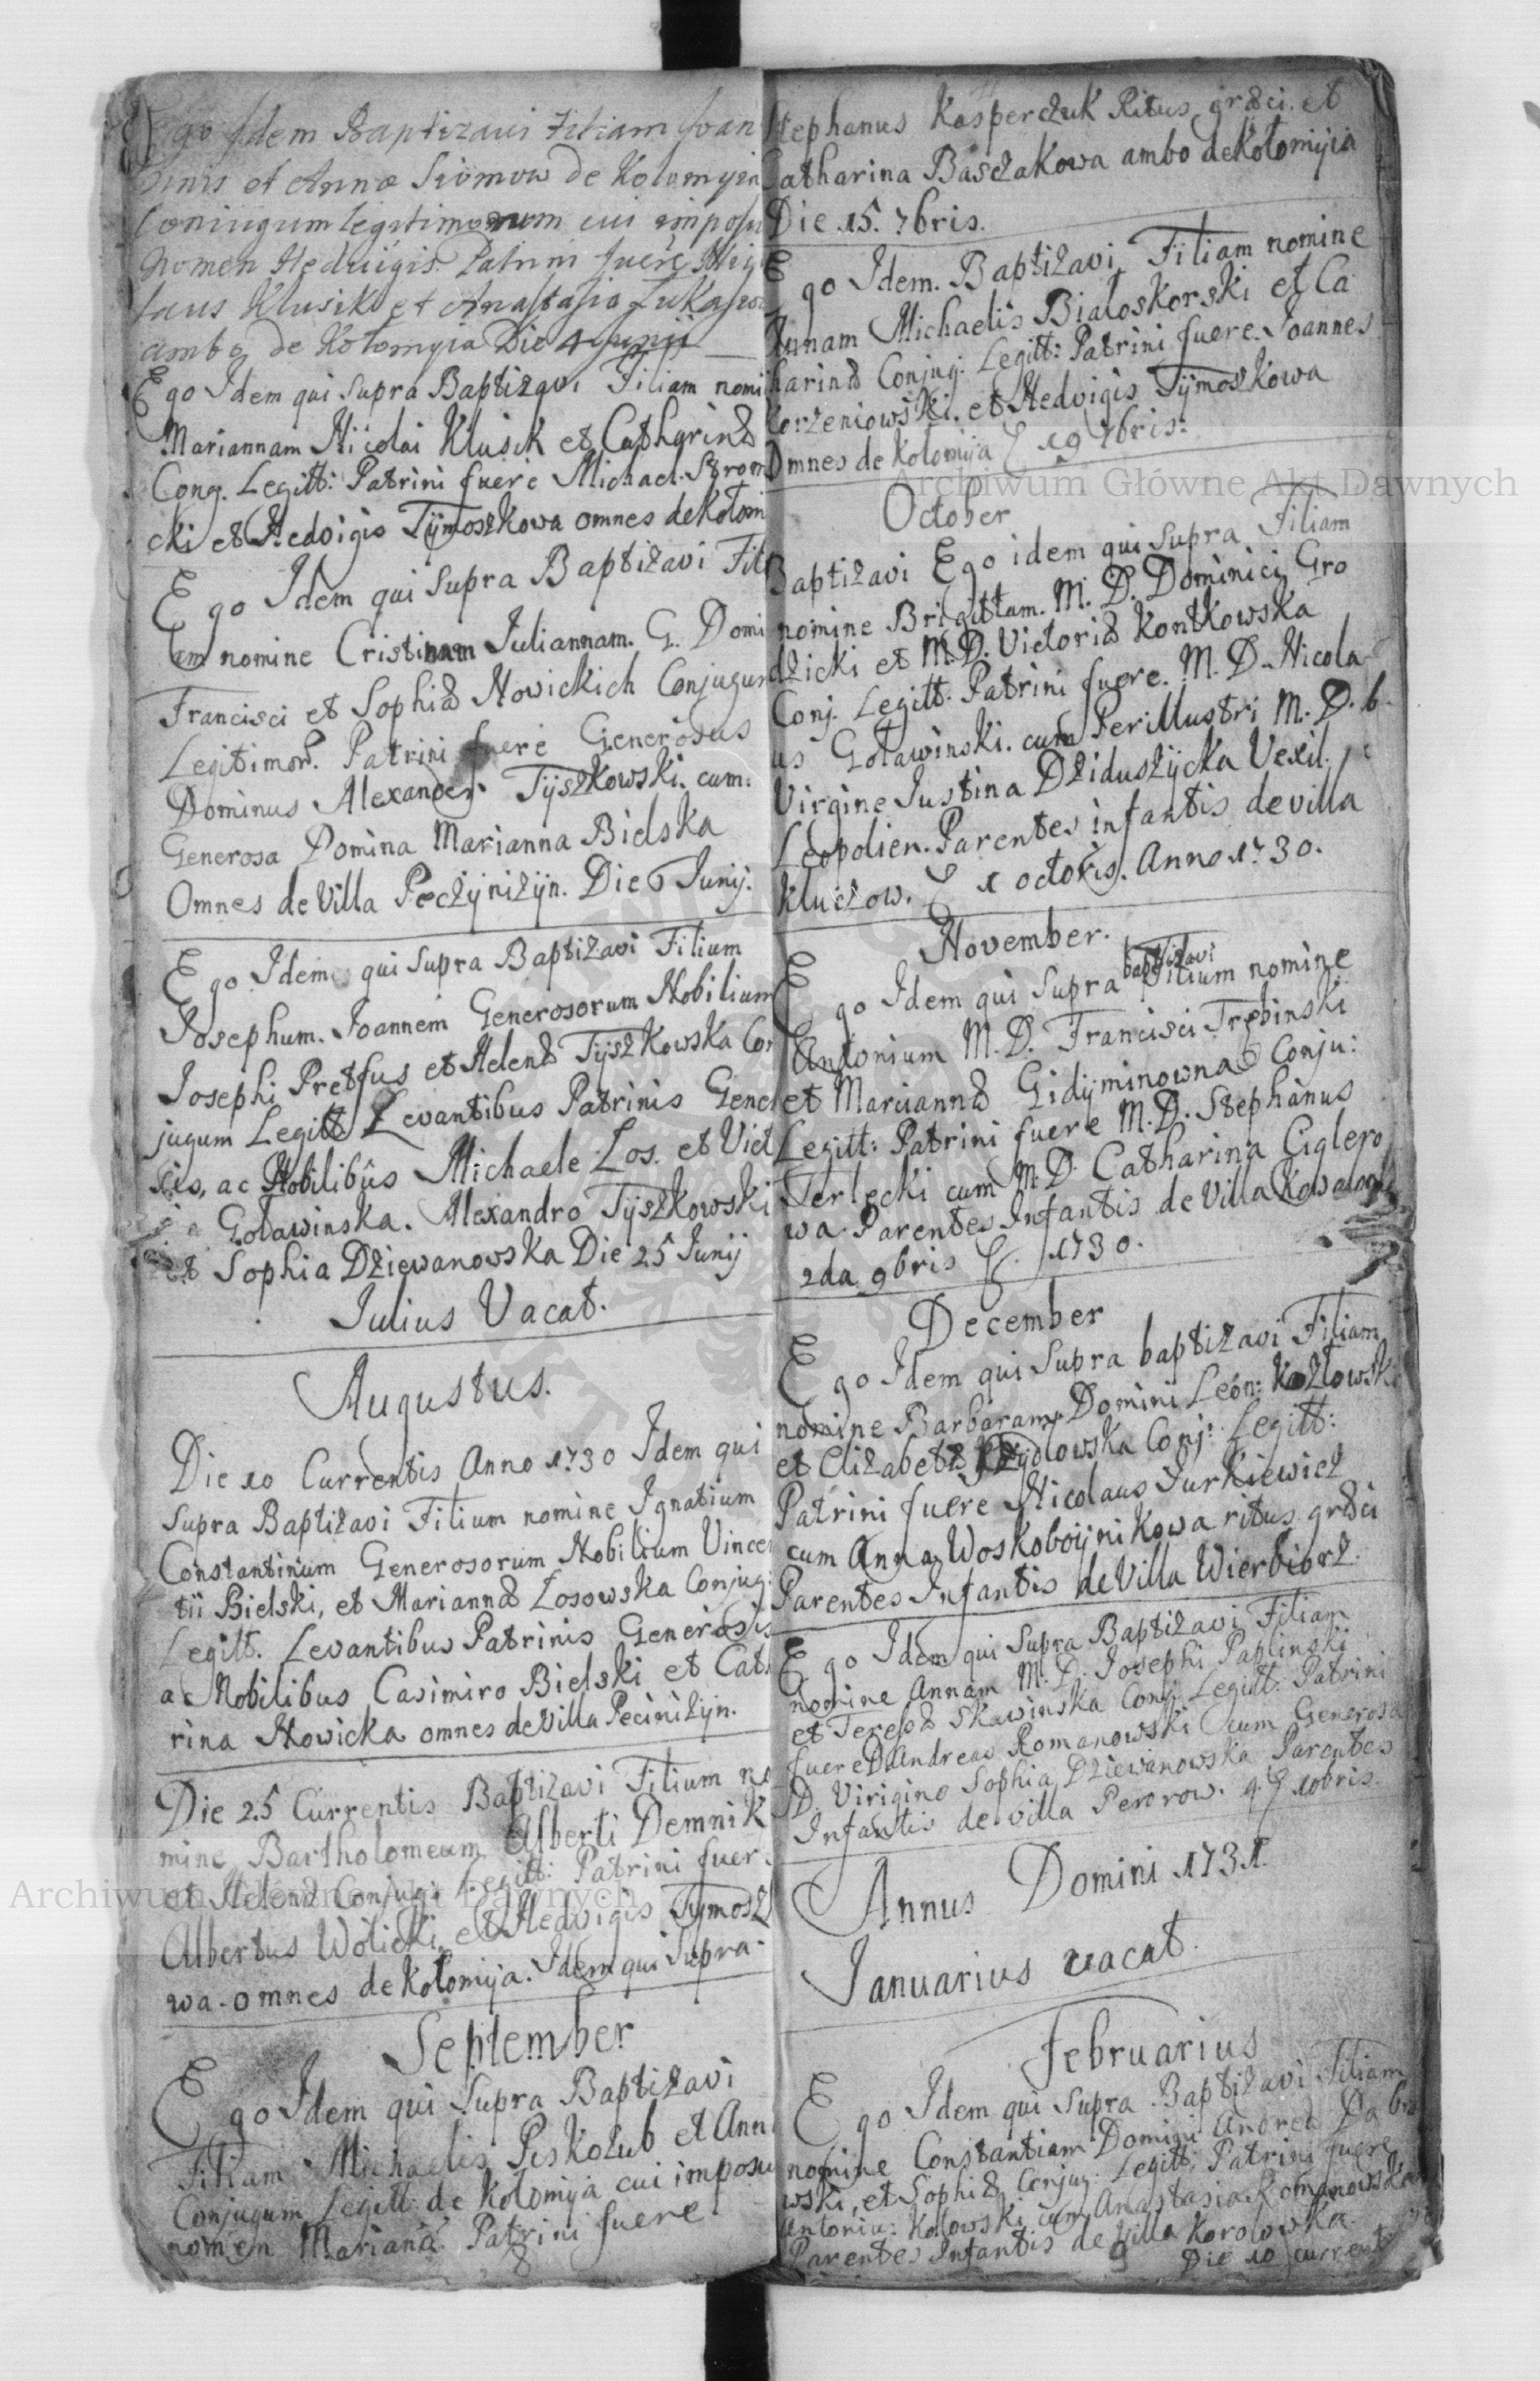 Ego Idem Baptizavi Filiam Joan
nis et Annæ Siomow de Kolomyia
Coniugum Legitimorum cui imposui
Nomen Hedvigis. Patrini fuere Nico
laus Klusik et Anastasia Lukaszow
ambo de Kołomyia Die 4 Junii
Ego Idem qui Supra Baptizavi Filiam nomi
Mariannam Nicolai Klusik et Catharinæ
Cong. Legitt: Patrini fuere Michael
cki et Hedvigis Tÿmoszkowa omnes de Kołom
Ego Idem qui Supra Baptizavi Fili
am nomine Cristinam Juliannam. G. Domi
Francisci et Sophiæ Nowickich Conjugum
Legitimor. Patrini fuere Generosus
Dominus Alexander Tÿszkowski. cum:
Generosa Domina Marianna Bielska
Omnes de Villa Peczÿniżÿn. Die 6 Junij.
Ego Idem qui Supra Baptizavi Filium
Josephum. Joannem Generosorum Nobilium
Josephi Pretfus et Helenæ Tÿszkowska Con
jugum Legitt Levantibus Patrinis Gene
sis, ac Nobilibus Michaele Łos. et Vict
Goławinska. Alexandro Tÿszkowski
et Sophia Dziewanowska Die 25 Junij
Julius Vacat.
Augustus.
Die 10 Currentis Anno 1730 Idem qui
Supra Baptizavi Filium nomine Ignatium
Constantinum Generosorum Nobilium Vincen
tii Bielski, et Mariannæ Łosowska Conjug:
Legitt. Levantibus Patrinis Generosis
ac Nobilibus Casimiro Bielski et Cath
rina Nowicka omnes de Villa Peciniżÿn.
Die 25 Currentis Baptizavi Filium no
mine Bartholomeum Alberti Demnik
et Helenæ Conjug: Legitt: Patrini fuer
Albertus Wolicki, et Hedvigis Tÿmosz
wa. omnes de Kołomija. Idem qui Supra.
September
Ego Idem qui Supra Baptizavi
Filiam Michaelis Piskozub et Ann
Conjugum Legitt: de Kołomija cui imposui
nomen Mariana Patrini fuere
Stephanus Kasperczuk Ritus græci. et
Catharina Basczakowa ambo de Kołomÿia
Die 15. 7bris.
Ego Idem. Baptizavi Filiam nomine
Annam Michaelis Białoskorski et Ca
tharinæ Conjug. Legitt: Patrini fuere. Joannes
Korzeniowski. et Hedvigis Tÿmoszkowa
Omnes de Kołomija 19 7bris:
October
Baptizavi Ego idem qui Supra Filiam
nomine Brigittam. M. D. Dominici Gro
dzicki et M. D. Victoriæ Kontkowska
Conj. Legitt. Patrini fuere. M. D. Nicola
us Goławinski. cum Perillustri M. D.
Virgine Justina Dziduszÿcka Vexil.
Leopolien. Parentes infantis de villa
Kluczow. 1 octobris. Anno 1730.
November.
Ego Idem qui Supra baptizavi Filium nomine
Antonium M. D. Francisci Trębinski
et Mariannæ Gidÿminowna Conju:
Legitt: Patrini fuere M. D. Stephanus
Terlecki cum M. D. Catharina Ciglero
wa Parentes Infantis de Villa
2da 9bris 1730.
December
Ego Idem qui Supra baptizavi Filiam
nomine Barbaram Domini León: Kozłowski
et Elizabetæ Conj: Legitt:
Patrini fuere Nicolaus Jurkiewicz
cum Anna Woskoboÿnikowa ritus græci
Parentes Infantis de Villa Wierbiorz.
Ego Idem qui Supra Baptizavi Filiam
nomine Annam M. D. Josephi Paplinski
et Teresæ Skawinska Conj. Legitt. Patrini
fuere D. Andreas Romanowski cum Generosa
D. Virigine Sophia Dziewanowska Parentes
Infantis de villa Pererow. 4. 10bris.
Annus Domini 1731.
Januarius vacat.
Februarius
Ego Idem qui Supra Baptizavi Filiam
nomine Constantiam Domini Andreæ Dabro
wski, et Sophiæ Conjug: Legitt: Patrini fuere
Antoniu: Kozłowski cum Anastasia Romanowska
Parentes Infantis de Villa Korolowka.
Die 10 current
Archiwum Główne Akt Dawnych
Archiwum Główne Akt Dawnych